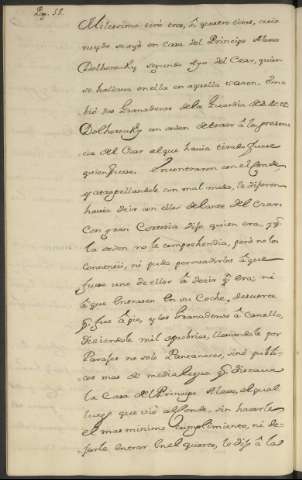 Pag. 58.
Milesimo tiró
ruydo se oyó en casa del Principe Alexo
Dolhorouky segundo Ayo del Czar, quien
se hallava en ella en aquella sazon. Em-
bió dos Granaderos de la Guardia
Dolhorouky con orden de traer à la presen-
cia del Czar el que havia tirado fuese
quien fuese. Encontraron con el Conde,
y atropellandole con mal modo, le dijeron
havia de ir con ellos delante del Czar.
Con gran Cortesia dijo quien era, y q.e
la orden no le comprehendia, pero no los
convenció, ni pudo persuadirlos à que
fuese uno de ellos à decir q.n era, ni
à que entrasen en su Coche, de suerte
q.e fue à pie, y los Granaderos à Cavallo,
diciendole mil oprobrios, llevandole por
Parajes no solo Pantanosos, sino publi-
cos mas de media legua q.e distava
la Casa del Principe Alexo, el qual
luego que vió al Conde, sin hacerle
el mas minimo cumplimiento, ni de-
jarle entrar en el quarto, le dijo à la